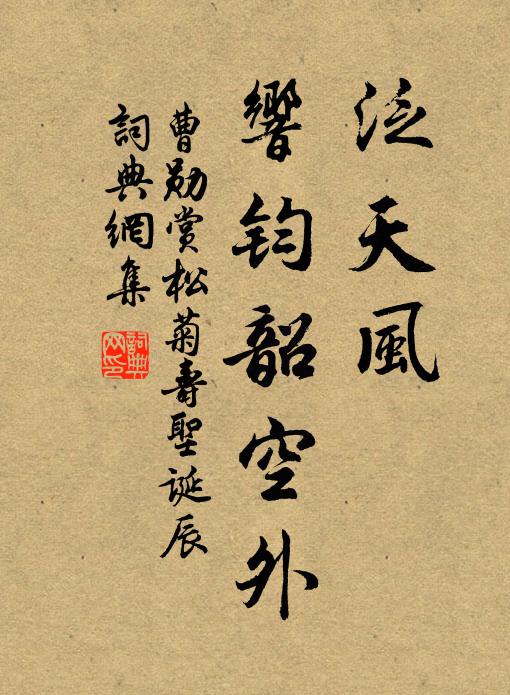 泛天風
響鈞韶空外
曹勛賞松菊壽聖誕辰
詞典網集
詞典
网印